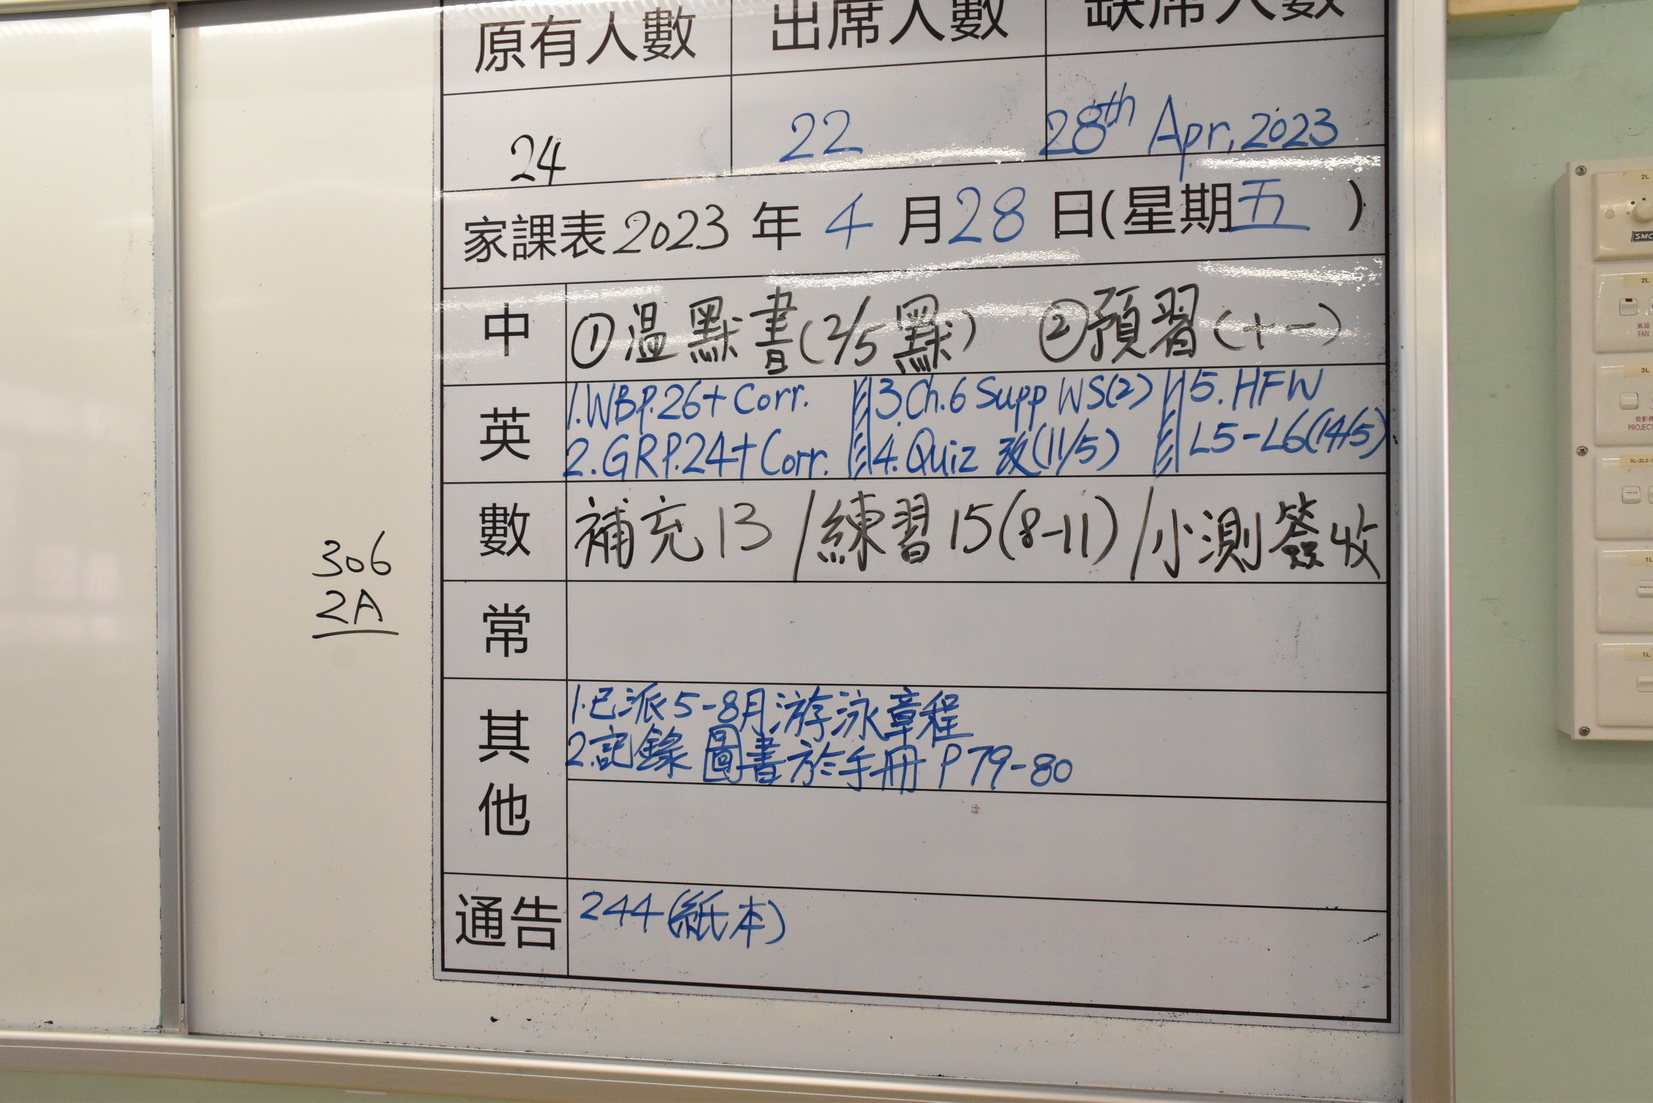 原有人數 出席人數 缺席人數
24 22 28th Apr, 2023
家課表2023年4月28日(星期五)
中 ①温默書(2/5默) ②預習(十一)
英 1.WBP.26+Corr. 3.Ch.6 Supp WS(2) 5.HFW
2.GRP.24+Corr. 4.Quiz 改(11/5) L5-L6(14/5)
數 補充13/練習15(8-11)/小測簽收
306
2A
常
其他 1.已派5-8月游泳章程
2.記錄圖書於手冊P79-80
通告 244(紙本)
2L
SMC
2L
FAN
3L
PROJECT
1L
1L